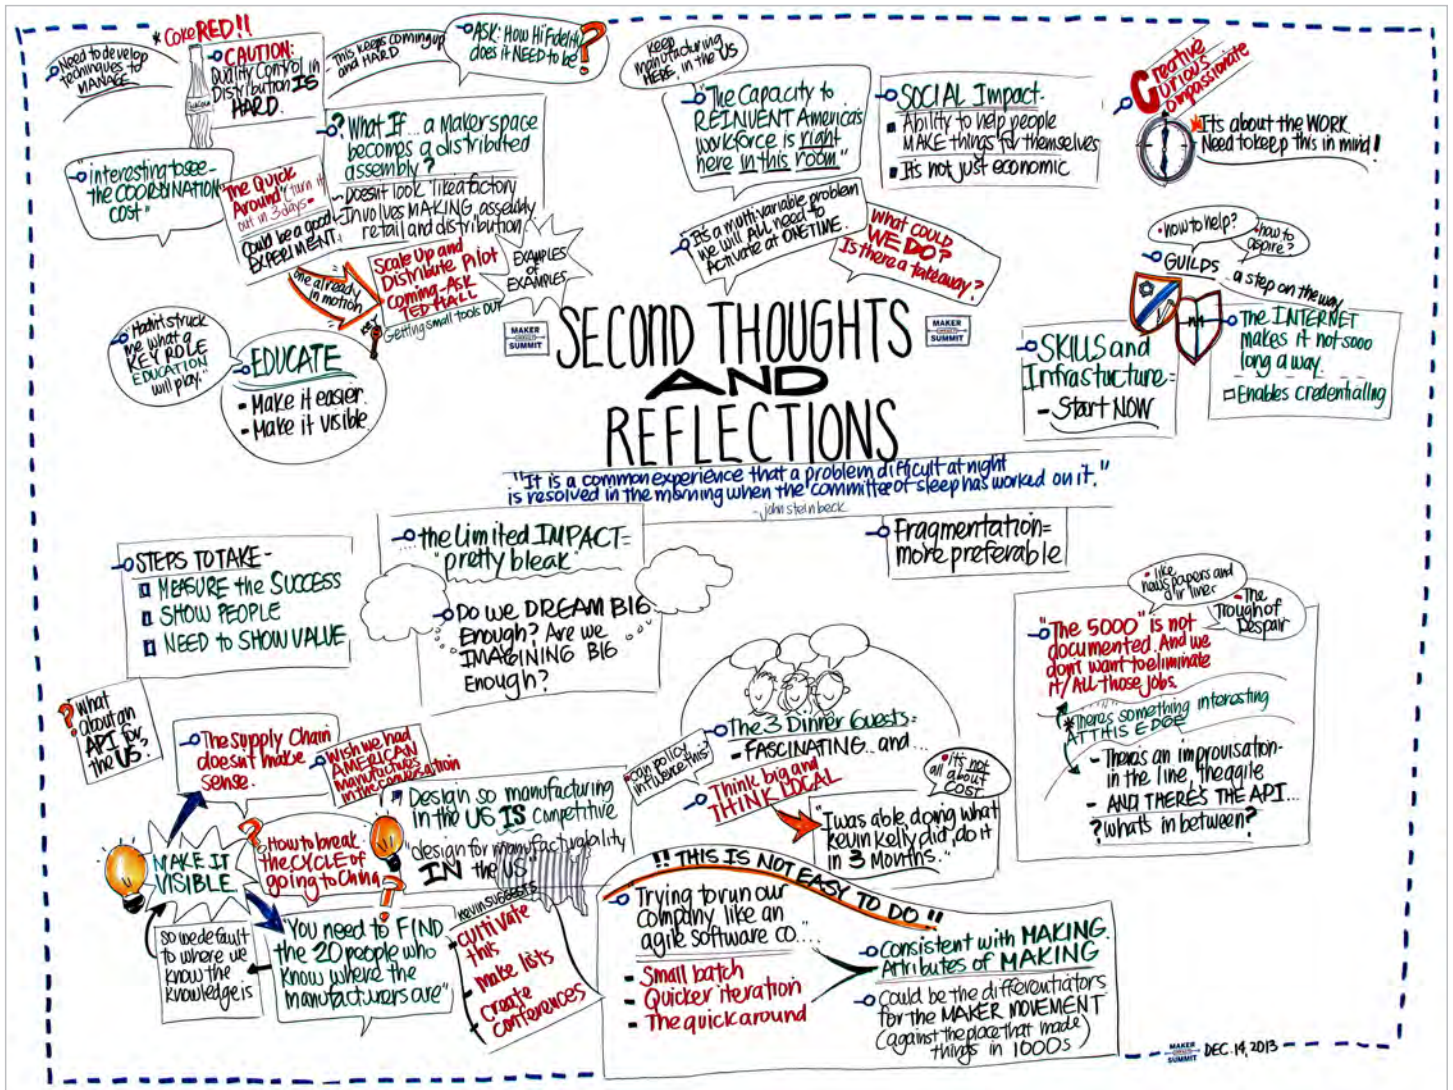 * Coke RED!!
Need to develop
techniques to
MANAGE
CAUTION:
Quality Control in
Distribution IS
HARD.
This keeps coming up
and HARD
ASK: How Hi Fidelity
does it NEED to be?
"interesting to see-
the COORDINATION
COST"
"The Quick
Around" (turn it
out in 3 days-
Could be a good
EXPERIMENT.
? What If... a Maker space
becomes a distributed
assembly?
- Doesn't look like a factory
- Involves MAKING, assembly,
retail and distribution.
one already
in motion
Scale Up and
Distribute Pilot
Coming-Ask
TED HALL
Getting small tools OUT
EXAMPLES
of
EXAMPLES
"Hadn't struck
me what a
KEY ROLE
EDUCATION
will play."
EDUCATE
- Make it easier.
- Make it visible.
keep
manufacturing
HERE, in the US
"The Capacity to
REINVENT America's
workforce is right
here in this room"
It's a multi variable problem
We will ALL need to
Activate at ONE TIME.
What COULD
WE DO?
Is there a takeaway?
SOCIAL Impact.
Ability to help people
MAKE things for themselves
It's not just economic
Creative
Curious
Compassionate
It's about the WORK
Need to keep this in mind!
how to help?
how to
aspire?
GUILDS a step on the way
SKILLS and
Infrastucture=
- Start NOW
The INTERNET
makes it not sooo
long a way.
Enables credentialing
MAKER
SUMMIT
SECOND THOUGHTS
AND
REFLECTIONS
MAKER
SUMMIT
"It is a common experience that a problem difficult at night
is resolved in the morning when the committee of sleep has worked on it."
- john steinbeck
STEPS TO TAKE-
MEASURE the SUCCESS
SHOW PEOPLE
NEED to SHOW VALUE
...the Limited IMPACT=
"pretty bleak"
Do we DREAM BIG
Enough? Are we
IMAGINING BIG
Enough?
Fragmentation=
more preferable
like
newspapers and
air liner
The
Trough of
Despair
"The 5000" is not
documented. And we
don't want to eliminate
it/All those jobs.
* Theres something interesting
AT THIS EDGE
- There's an improvisation-
in the line, the agile
- AND THERE'S THE API...
? whats in between?
? What
about an
API for
the US?
The supply Chain
doesn't make
sense.
Wish we had
AMERICAN
manufactures
in the conversation
MAKE IT
VISIBLE
? How to break
the CYCLE of
going to China
?
Design so manufacturing
in the US IS competitive
"design for manufacturability
IN the US"
so we default
to where we
know the
knowledge is
"You need to FIND
the 20 people who
know where the
manufacturers are"
kevin SUGGESTS
- cultivate
this
- make lists
- create
conferences
The 3 Dinner Guests=
- FASCINATING.. and...
can policy
influence this?
Think big and
THINK LOCAL
it's not
all about
COST
"I was able, doing what
kevin kelly did, do it
in 3 Months."
!! THIS IS NOT EASY TO DO !!
"Trying to run our
company like an
agile software co....
- Small batch
- Quicker iteration
- The quick around
Consistent with MAKING.
Attributes of MAKING
Could be the differentiators
for the MAKER MOVEMENT
(against the place that made
things in 1000s)
MAKER
SUMMIT
DEC. 14, 2013